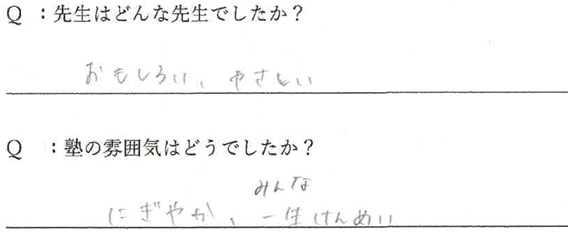 Q ：先生はどんな先生でしたか？
おもしろい、やさしい
Q ：塾の雰囲気はどうでしたか？
みんな
にぎやか、一生けんめい